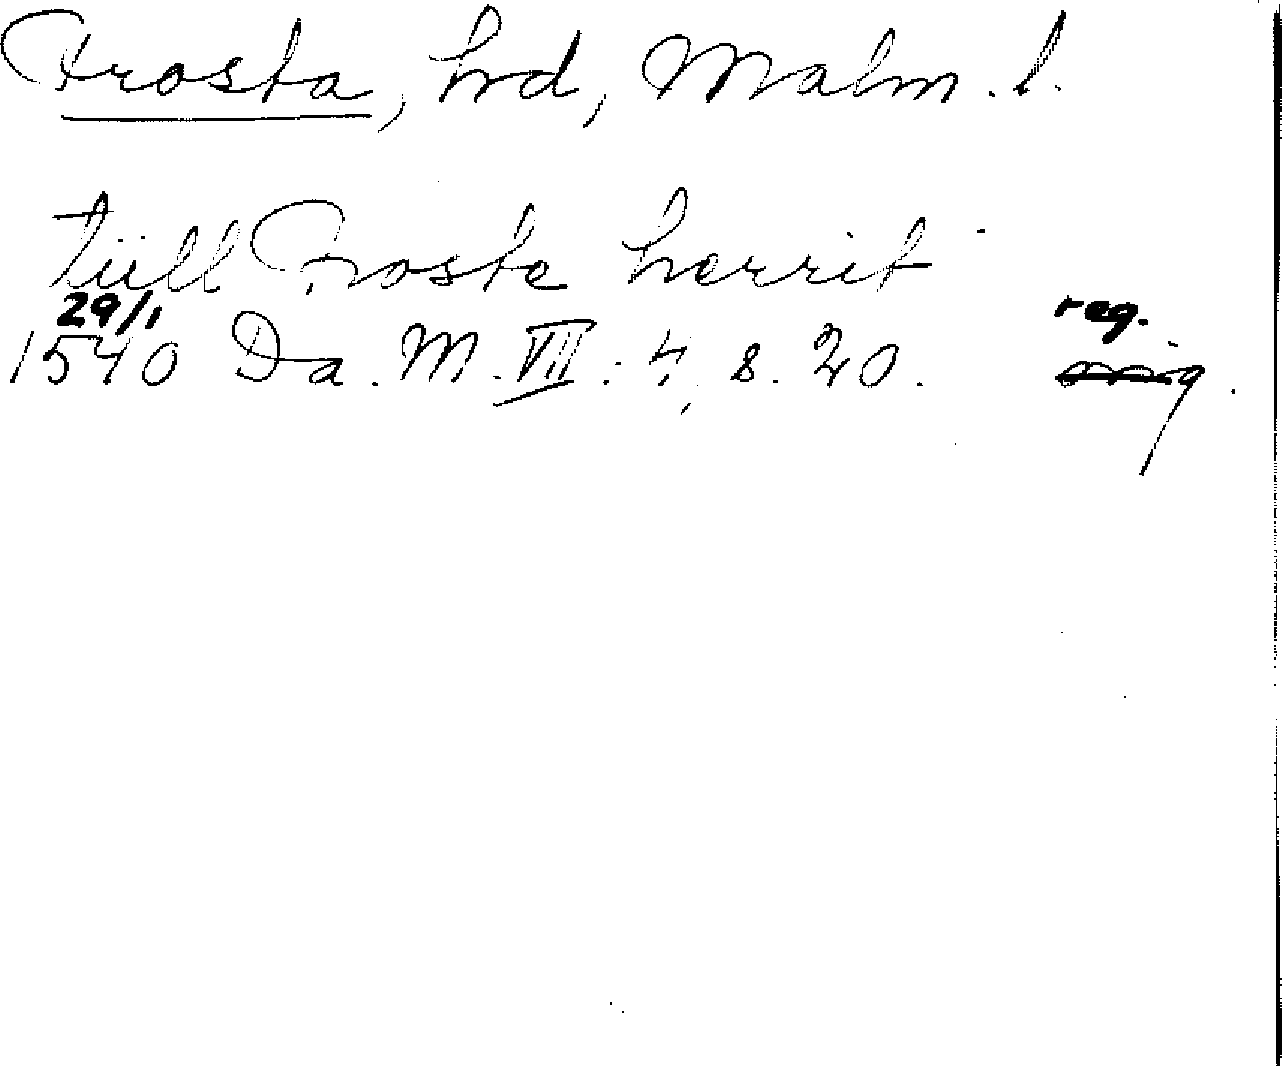 Frosta, hrd, Malm. l.
tiill Froste herrit
29/1 reg.
1540 Da. M. VII: 4, s. 20. orig.